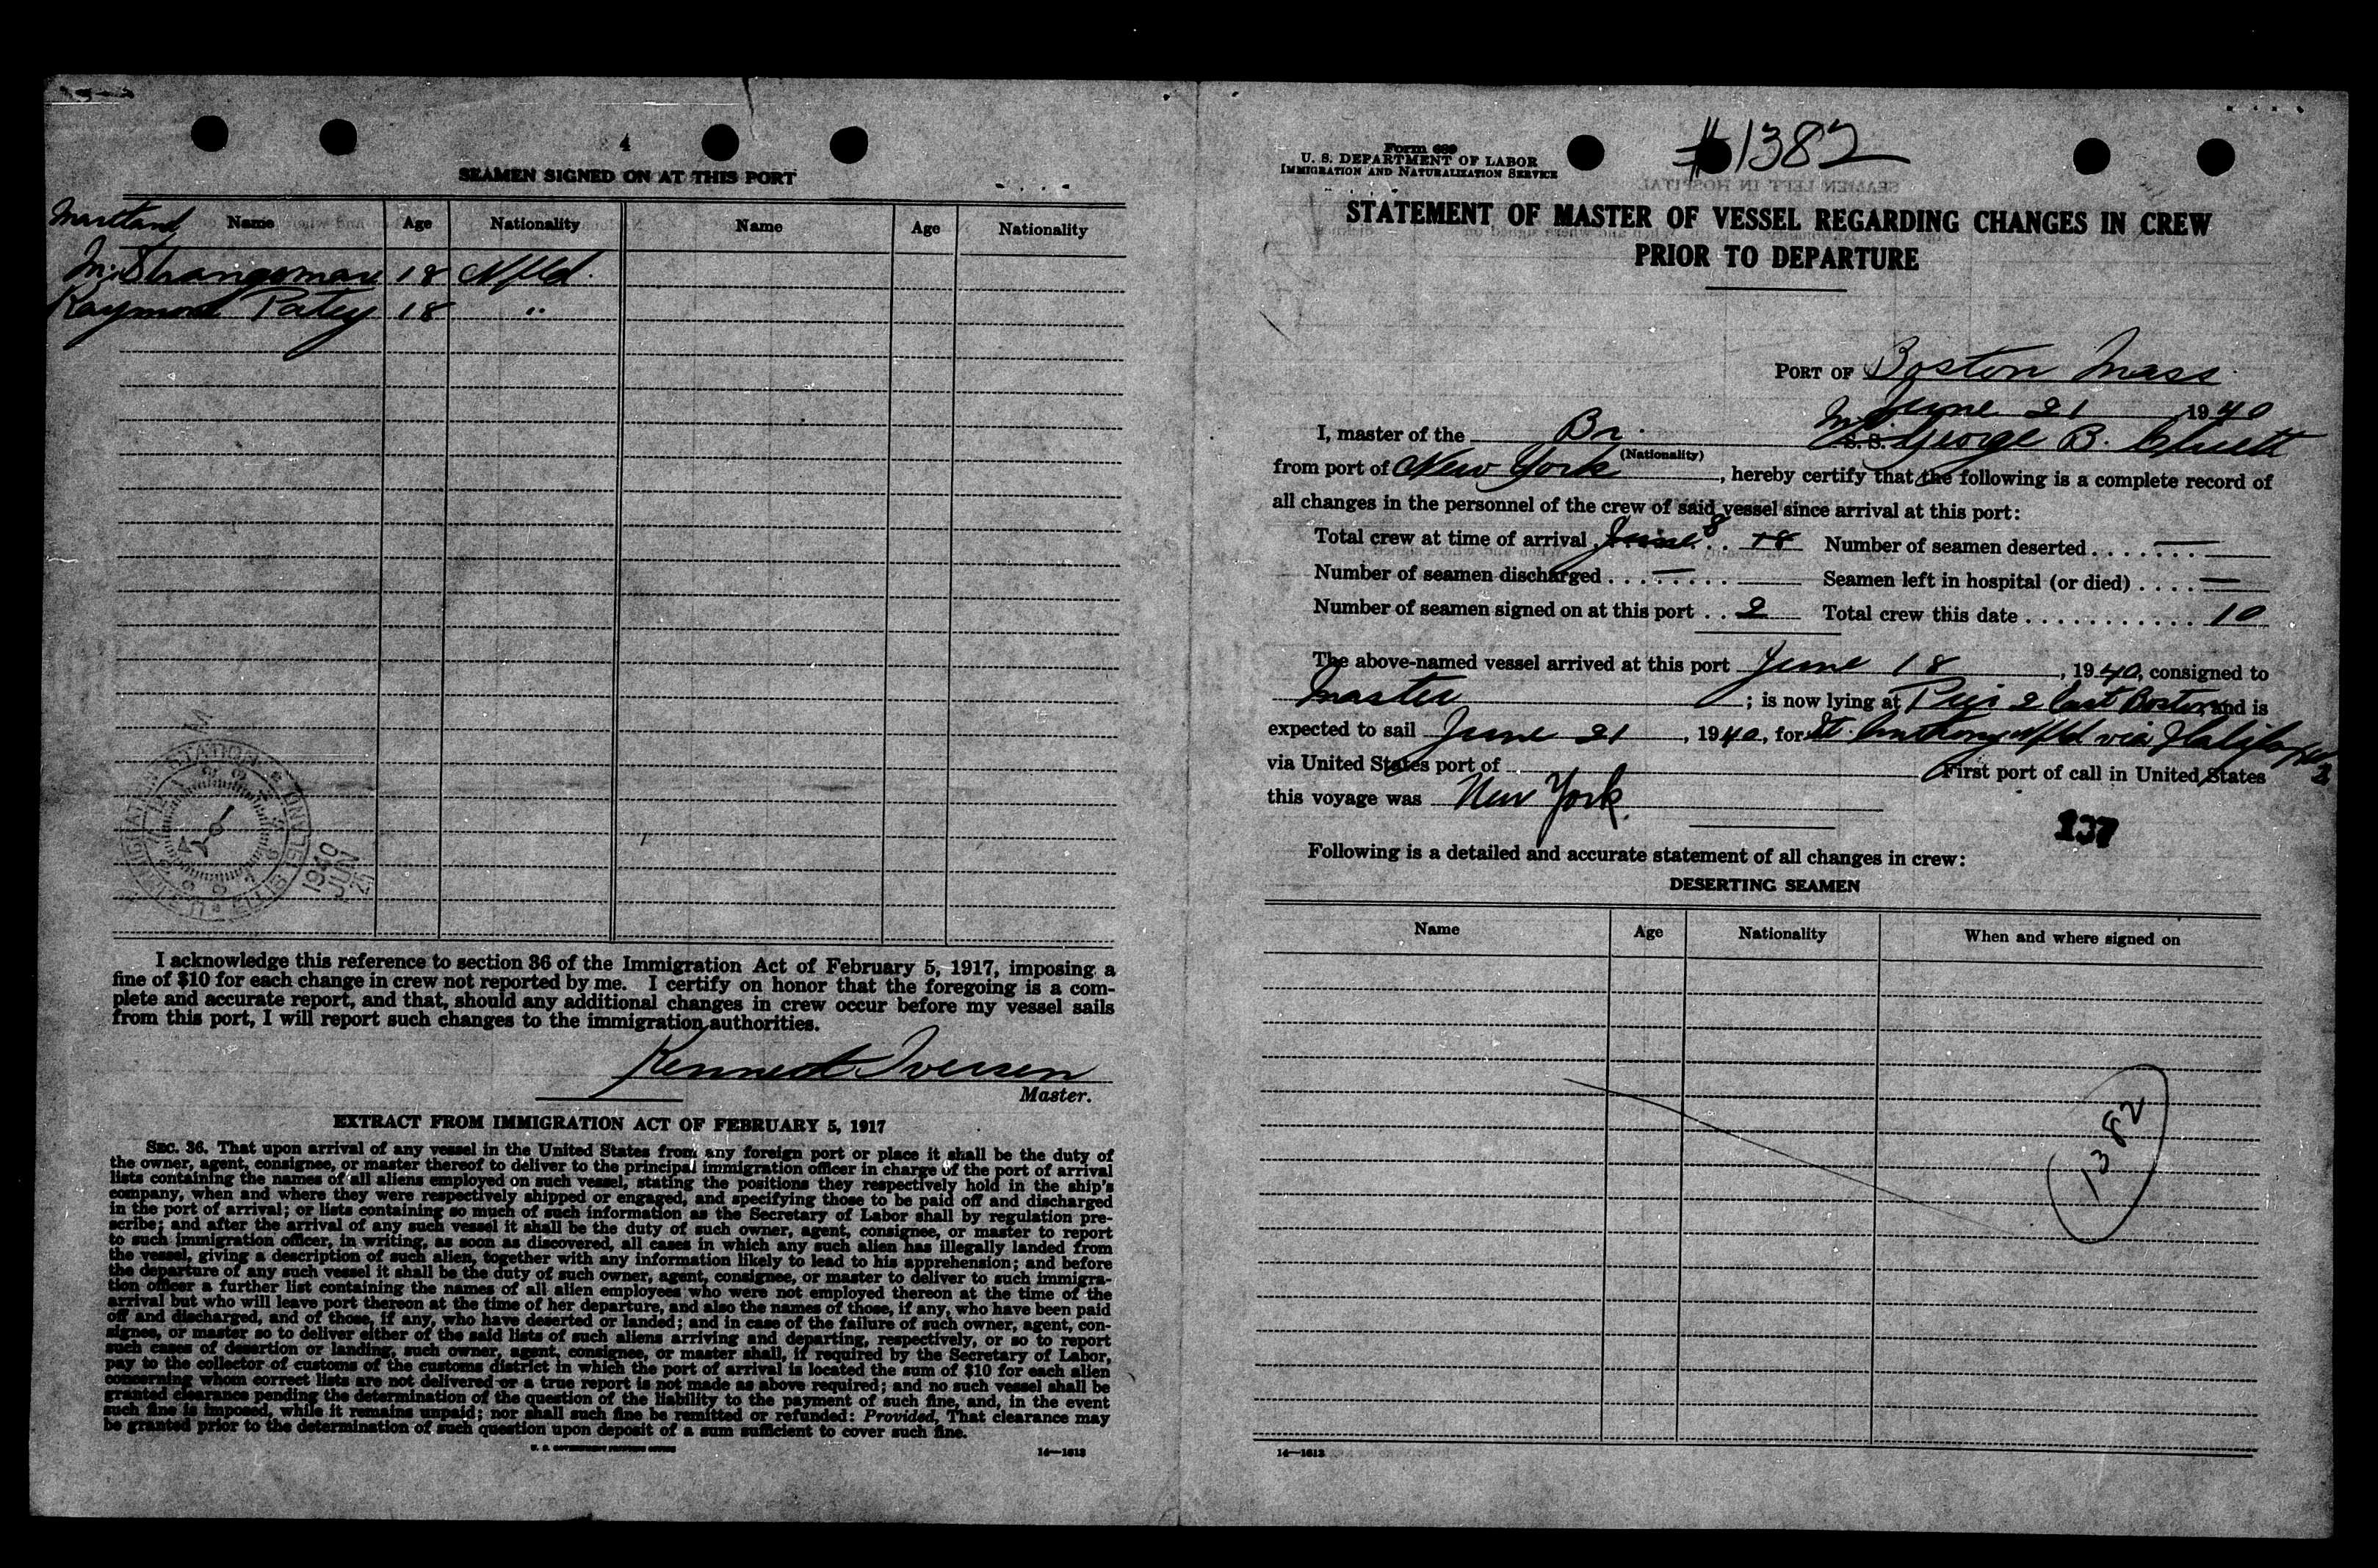 4
SEAMEN SIGNED ON AT THIS PORT
Name Age Nationality Name Age Nationality
Maitland
M. Strangemore 18 Nfld.
Raymond Patey 18 "
U.S. IMMIGRATION STATION
1940 JUN 21
I acknowledge this reference to section 36 of the Immigration Act of February 5, 1917, imposing a
fine of $10 for each change in crew not reported by me. I certify on honor that the foregoing is a com-
plete and accurate report, and that, should any additional changes in crew occur before my vessel sails
from this port, I will report such changes to the immigration authorities.
Kenneth Iversen
Master.
EXTRACT FROM IMMIGRATION ACT OF FEBRUARY 5, 1917
SEC. 36. That upon arrival of any vessel in the United States from any foreign port or place it shall be the duty of
the owner, agent, consignee, or master thereof to deliver to the principal immigration officer in charge of the port of arrival
lists containing the names of all aliens employed on such vessel, stating the positions they respectively hold in the ship's
company, when and where they were respectively shipped or engaged, and specifying those to be paid off and discharged
in the port of arrival; or lists containing so much of such information as the Secretary of Labor shall by regulation pre-
scribe; and after the arrival of any such vessel it shall be the duty of such owner, agent, consignee, or master to report
to such immigration officer, in writing, as soon as discovered, all cases in which any such alien has illegally landed from
the vessel, giving a description of such alien, together with any information likely to lead to his apprehension; and before
the departure of any such vessel it shall be the duty of such owner, agent, consignee, or master to deliver to such immigra-
tion officer a further list containing the names of all alien employees who were not employed thereon at the time of the
arrival but who will leave port thereon at the time of her departure, and also the names of those, if any, who have been paid
off and discharged, and of those, if any, who have deserted or landed; and in case of the failure of such owner, agent, con-
signee, or master so to deliver either of the said lists of such aliens arriving and departing, respectively, or so to report
such cases of desertion or landing, such owner, agent, consignee, or master shall, if required by the Secretary of Labor,
pay to the collector of customs of the customs district in which the port of arrival is located the sum of $10 for each alien
concerning whom correct lists are not delivered or a true report is not made as above required; and no such vessel shall be
granted clearance pending the determination of the question of the liability to the payment of such fine, and, in the event
such fine is imposed, while it remains unpaid; nor shall such fine be remitted or refunded: Provided, That clearance may
be granted prior to the determination of such question upon deposit of a sum sufficient to cover such fine.
U. S. GOVERNMENT PRINTING OFFICE 14—1613
Form 689
U. S. DEPARTMENT OF LABOR
IMMIGRATION AND NATURALIZATION SERVICE
#1382
STATEMENT OF MASTER OF VESSEL REGARDING CHANGES IN CREW
PRIOR TO DEPARTURE
PORT OF Boston Mass
June 21 1940
I, master of the Br. S. S. George B. Cluett
(Nationality)
from port of New York, hereby certify that the following is a complete record of
all changes in the personnel of the crew of said vessel since arrival at this port:
Total crew at time of arrival June 8 18 Number of seamen deserted . . . . — 
Number of seamen discharged . . . — Seamen left in hospital (or died) . . . . —
Number of seamen signed on at this port . . 2 Total crew this date . . . . . . . . . . . 10
The above-named vessel arrived at this port June 18, 1940, consigned to
master; is now lying at Pier 2 East Boston, and is
expected to sail June 21, 1940, for St. Anthony Nfld via Halifax
via United States port of First port of call in United States
this voyage was New York.
137
Following is a detailed and accurate statement of all changes in crew:
DESERTING SEAMEN
Name Age Nationality When and where signed on
1382
14—1613